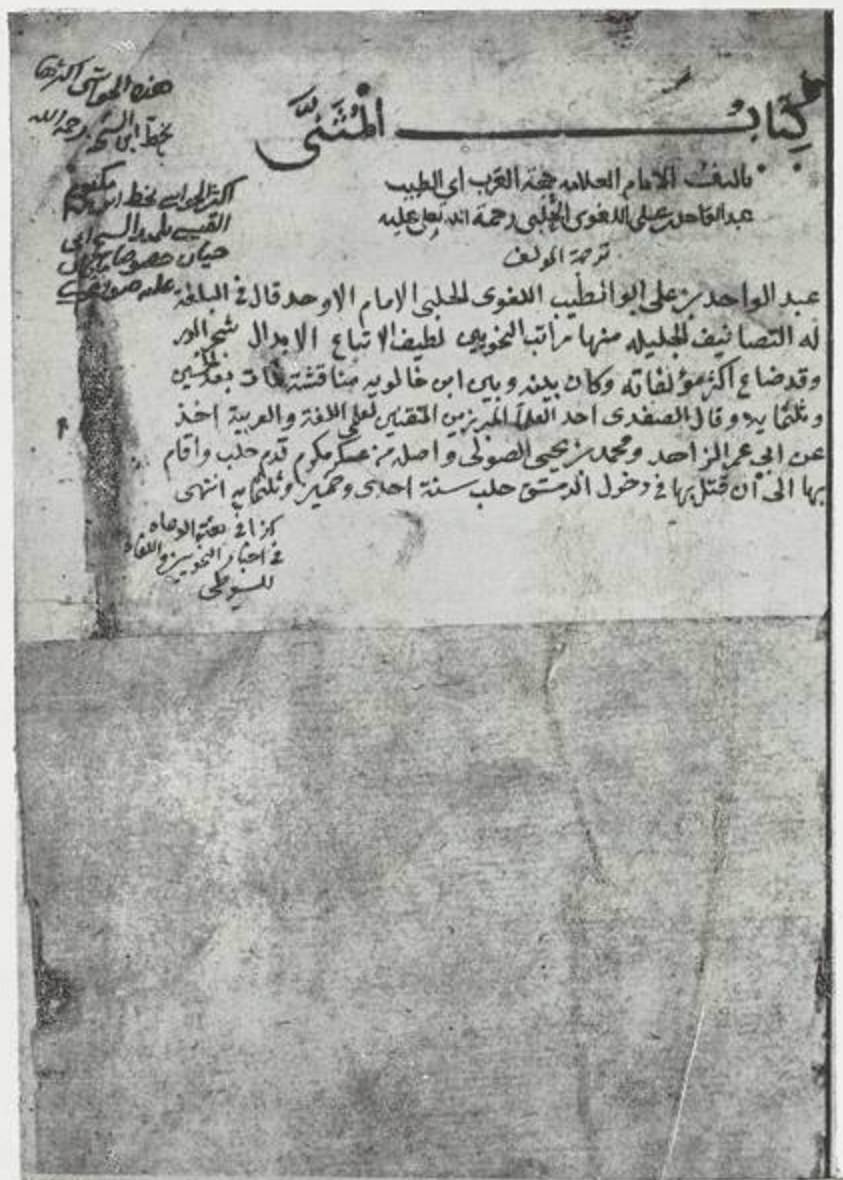 كتاب المُثَنَّى
تاليف الامام العلامه حجة العرب ابي الطيب
عبد الواحد بن علي اللغوي الحلبي رحمة الله تعالى عليه
ترجمة المولف
عبد الواحد بن على ابو الطيب اللغوى الحلبى الامام الاوحد قال في البلغة
له التصانيف الجليله منها مراتب النحويين لطيف الاتباع الابدال شجر الدر
وقد ضاع اكثر مؤلفاته وكان بينه وبين ابن خالويه مناقشة مات بعد الخمسين
وثلثمايه وقال الصفدى احد العلما المبرزين المتقنين لعلمي اللغة والعربية اخذ
عن ابى عمر الزاهد ومحمد بن يحيى الصولى واصله من عسكر مكرم قدم حلب واقام
بها الى أن قتل بها في دخول الدمستق حلب سنة احدى وخمسين وثلثمايه انتهى
كذا في بغية الوعاه
في اخبار النحويين واللغاه
للسيوطي
هذه الحواشى اكثرها
بخط ابن الشحنه رحمه الله
اكثر الحواشي بخط ابن مكتوم
القيسي تلميذ الشيخ ابي
حيان خصوصا ما
عليه صورة